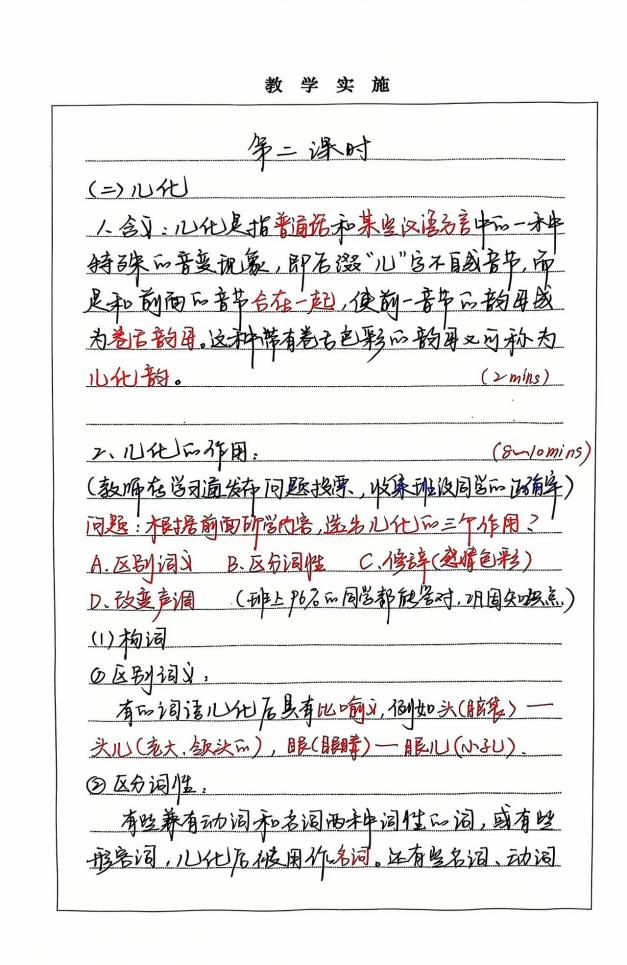 教学实施
第二课时
(二)儿化
1、含义：儿化是指普通话和某些汉语方言中的一种
特殊的音变现象，即后缀“儿”字不自成音节，而
是和前面的音节合在一起，使前一音节的韵母成
为卷舌韵母。这种带有卷舌色彩的韵母又可称为
儿化韵。 (2mins)
2、儿化的作用： (8~10mins)
(教师在学习通发布问题投票、收集班级同学的正确率)
问题：根据前面所学内容，选出儿化的三个作用？
A.区别词义 B.区分词性 C.修辞(感情色彩)
D.改变声调 (班上96%的同学都能答对，巩固知识点)
(1)构词
①区别词义：
有的词语儿化后具有比喻义，例如头(脑袋)—
头儿(老大、领头的)，眼(眼睛)—眼儿(小孔).
②区分词性：
有些兼有动词和名词两种词性的词，或有些
形容词，儿化后被用作名词。还有些名词、动词